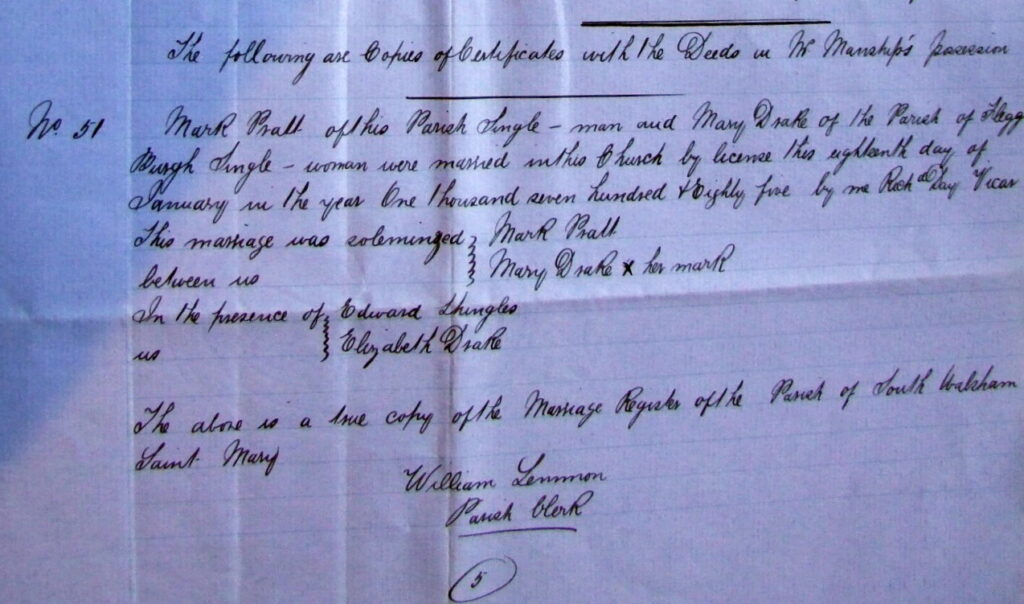 The following are Copies of Certificates with the Deeds in Mr Manship's possession
No. 51 Mark Pratt of this Parish Single - man and Mary Drake of the Parish of Flegg
Burgh Single - woman were married in this Church by license this eighteenth day of
January in the year One thousand seven hundred & Eighty five by me Richd Day Vicar
This marriage was solemnized } Mark Pratt
between us } Mary Drake x her mark
In the presence of } Edward Shingles
us } Elizabeth Drake
The above is a true copy of the Marriage Register of the Parish of South Walsham
Saint Mary
William Lemmon
Parish Clerk
5